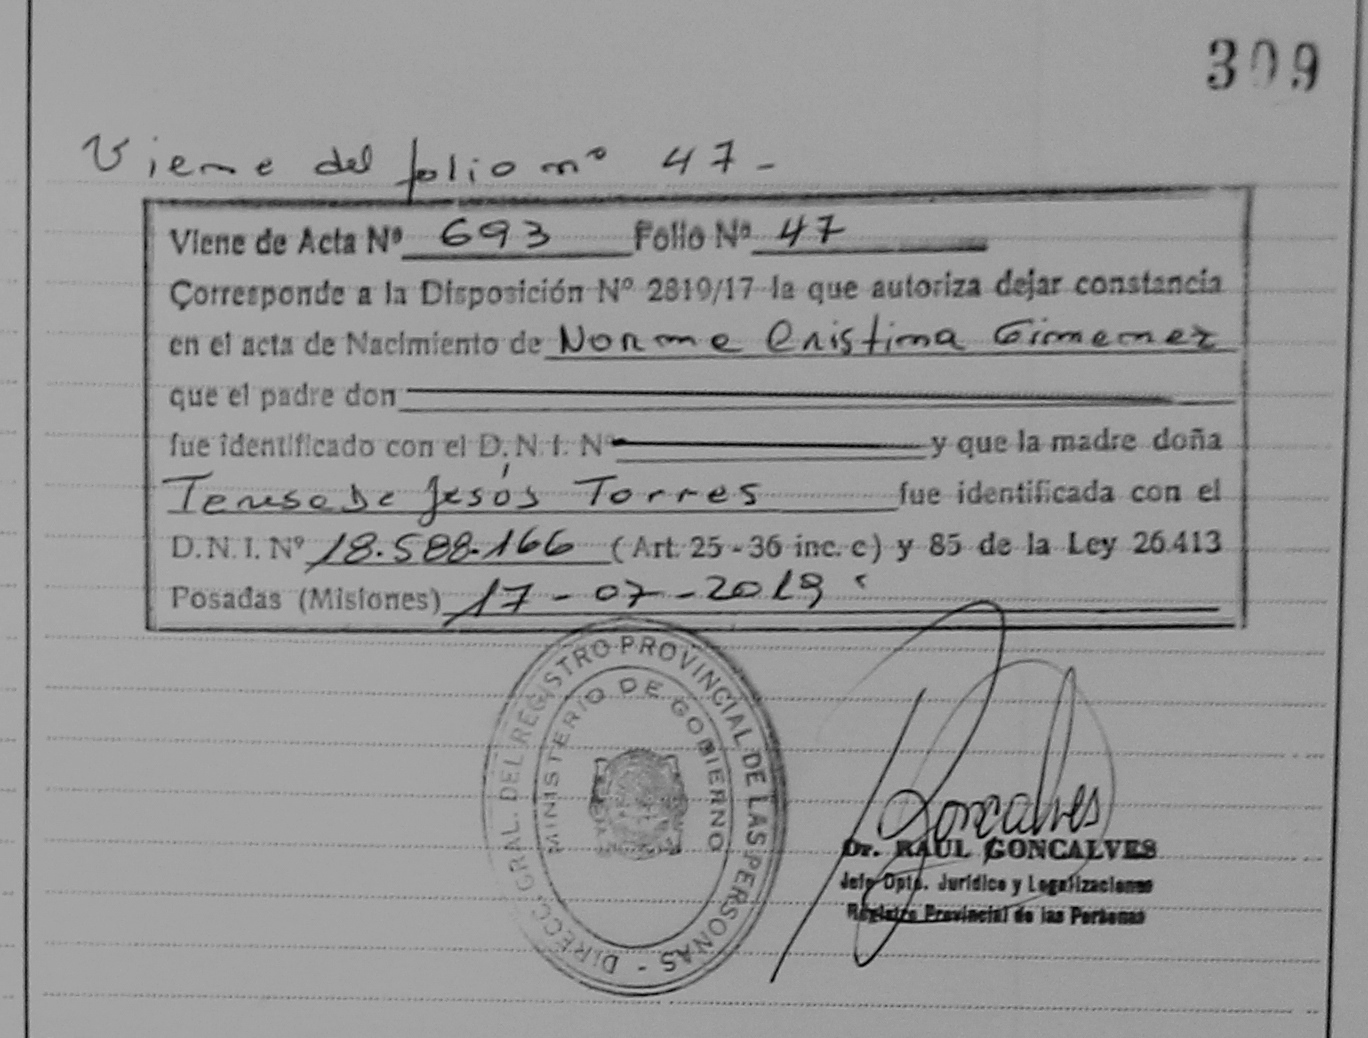 309
Viene del folio nº 47-
Viene de Acta Nº 693 Folio Nº 47
Corresponde a la Disposición Nº 2819/17 la que autoriza dejar constancia
en el acta de Nacimiento de Norma Cristina Gimenez
que el padre don
fue identificado con el D.N.I. Nº y que la madre doña
Teresa De Jesús Torres fue identificada con el
D.N.I. Nº 18.588.166 (Art. 25-36 inc. c) y 85 de la Ley 26.413
Posadas (Misiones) 17-07-2019
DIRECC. GRAL. DEL REGISTRO PROVINCIAL DE LAS PERSONAS -
MINISTERIO DE GOBIERNO
Goncalves
Dr. RAUL GONCALVES
Jefe Dpto. Jurídico y Legalizaciones
Registro Provincial de las Personas